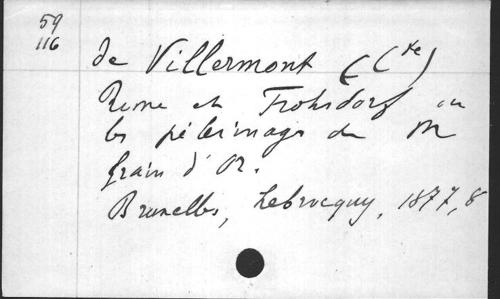 59
116
de Villermont (Cte)
Rome et Frohsdorf ou
les pélerinages de M
Grain d'Or.
Bruxelles, Lebrocquy, 1877, 8